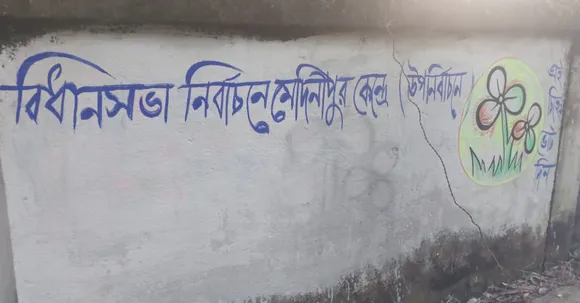 বিধানসভা নির্বাচনে মেদিনীপুর কেন্দ্রে (উপনির্বাচন)